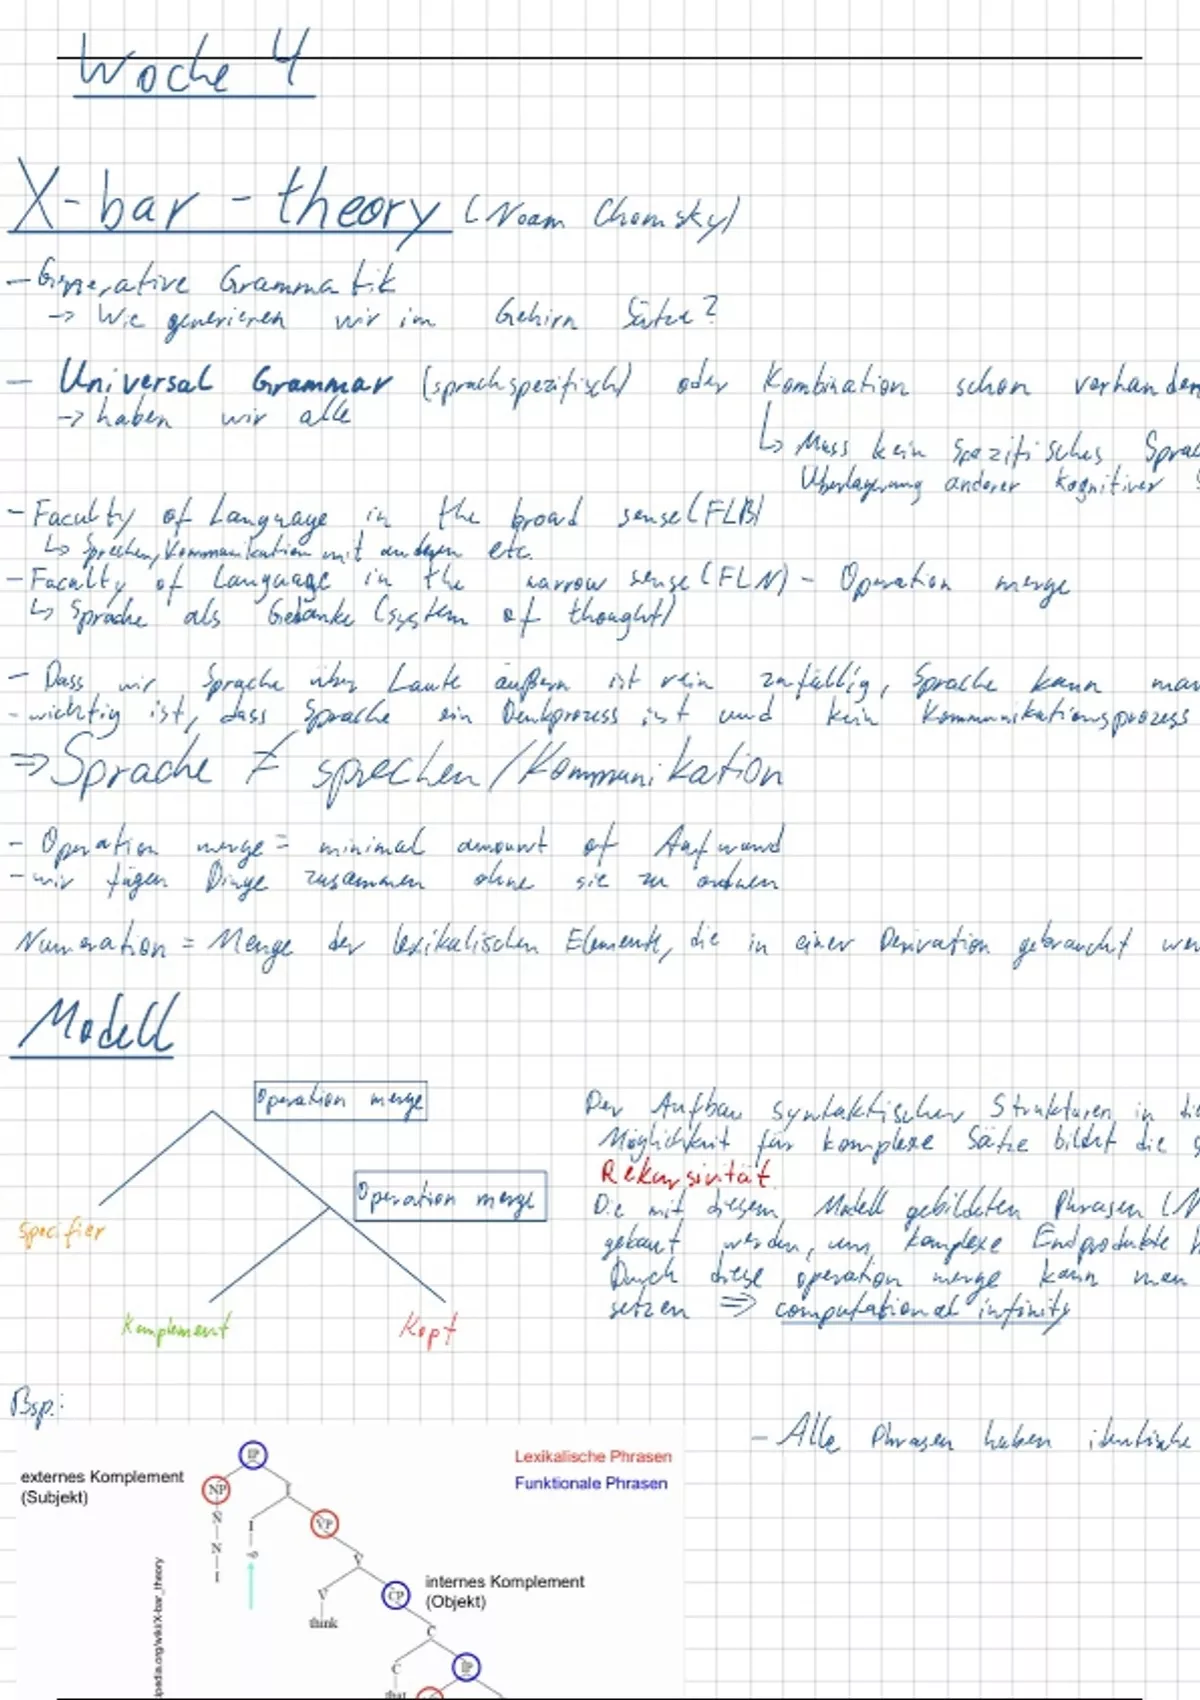 Woche 4
X-bar-theory (Noam Chomsky)
- Generative Grammatik
-> Wie generieren wir im Gehirn Sätze?
- Universal Grammar (sprachspezifisch) oder Kombination schon vorhanden
-> haben wir alle
↳ Muss kein spezifisches Sprac
Überlagerung anderer kognitiver
- Faculty of Language in the broad sense (FLB)
↳ Sprechen, Kommunikation mit anderen etc.
- Faculty of Language in the narrow sense (FLN) - Operation merge
↳ Sprache als Gedanke (system of thought)
- Dass wir Sprache über Laute äußern ist rein zufällig, Sprache kann man
- wichtig ist, dass Sprache ein Denkprozess ist und kein Kommunikationsprozess
=> Sprache ≠ sprechen/Kommunikation
- Operation merge = minimal amount of Aufwand
- wir fügen Dinge zusammen ohne sie zu ordnen
Numeration = Menge der lexikalischen Elemente, die in einer Derivation gebraucht wer
Modell
Operation merge
Operation merge
Specifier
Komplement
Kopf
Der Aufbau syntaktischer Strukturen in die
Möglichkeit für komplexe Sätze bildet die g
Rekursivität
Die mit diesem Modell gebildeten Phrasen (N
gebaut werden, um komplexe Endprodukte h
Durch diese operation merge kann man
setzen => computational infinity
Bsp.:
- Alle Phrasen haben identische
externes Komplement
(Subjekt)
Lexikalische Phrasen
Funktionale Phrasen
IP
NP
I
VP
N
I
N
I
V
V
think
CP
internes Komplement
(Objekt)
C
C
that
IP
ipedia.org/wiki/X-bar_theory